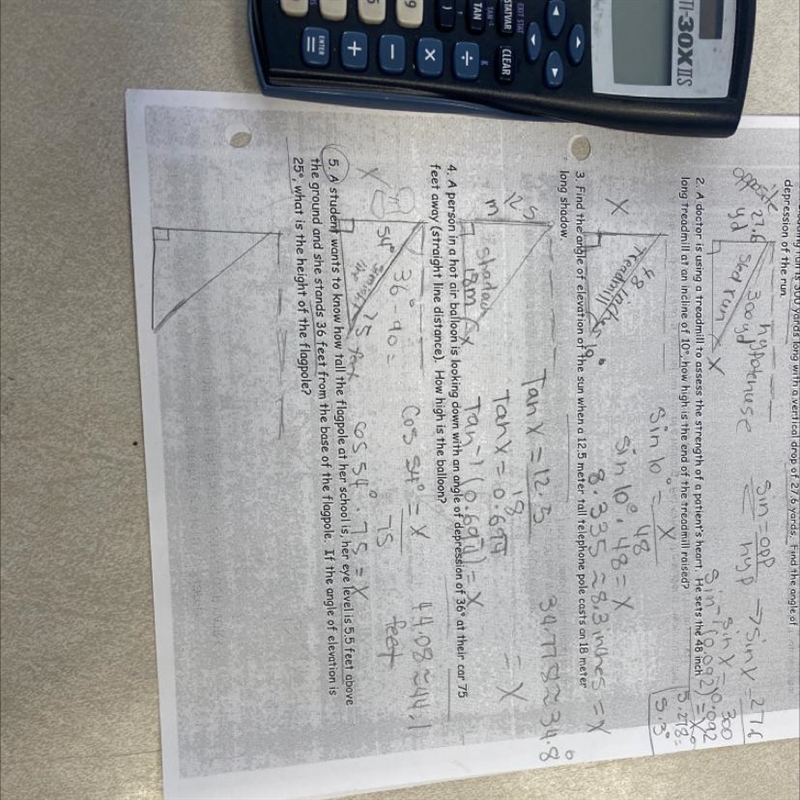 TI-30X IIS
EXIT STAT
STATVAR
CLEAR
TAN
TAN⁻¹
)
÷
×
−
+
ENTER
=
9
300 yards long with a vertical drop of 27.6 yards. Find the angle of
depression of the run.
opposite
27.6
yd
hypotenuse
300yd
Sked run
x
sin = opp
hyp
→ sin x = 27.6
300
sin x = 0.092
sin⁻¹(0.092) = x°
5.278 =
5.3°
2. A doctor is using a treadmill to assess the strength of a patient's heart. He sets the 48 inch
long treadmill at an incline of 10°, how high is the end of the treadmill raised?
X
48 inches
Treadmill
10°
Sin 10° = X
48
sin 10° · 48 = X
8.335 ≈ 8.3 inches = X
3. Find the angle of elevation of the sun when a 12.5 meter tall telephone pole casts an 18 meter
long shadow
12.5
m
shadow
18m
x
Tan X = 12.5
18
Tan X = 0.694
Tan-1 (0.694) = X
34.778 ≈ 34.8° = X
4. A person in a hot air balloon is looking down with an angle of depression of 36° at their car 75
feet away (straight line distance). How high is the balloon?
X
54°
36° - 90 =
straight line
75 feet
Cos 54° = X
75
cos 54° · 75 = X
44.08 ≈ 44.1
feet
5. A student wants to know how tall the flagpole at her school is, her eye level is 5.5 feet above
the ground and she stands 36 feet from the base of the flagpole. If the angle of elevation is
25°, what is the height of the flagpole?